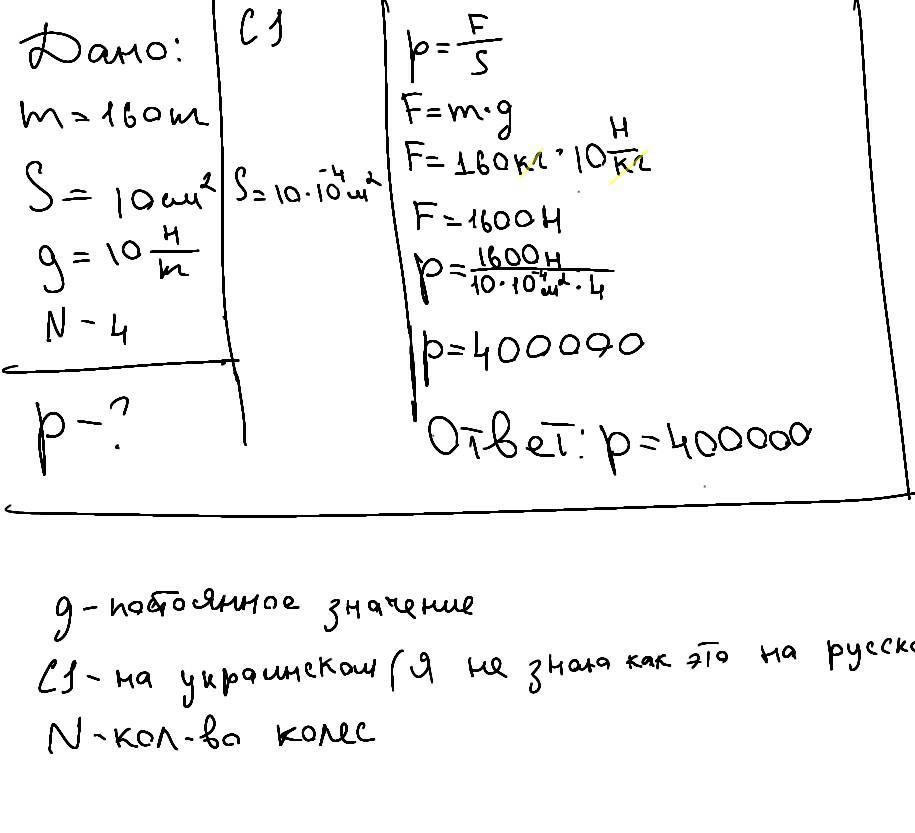 Дано:
m = 160 m
S = 10 см²
g = 10 Н/m
N - 4
p - ?
СІ
S = 10 · 10⁻⁴ м²
p = F/S
F = m · g
F = 160 кг · 10 Н/кг
F = 1600 Н
p = 1600 Н / 10 · 10⁻⁴ м² · 4
p = 400000
Ответ: p = 400000
g - постоянное значение
СІ - на украинском (я не знаю как это на русско
N - кол-во колес